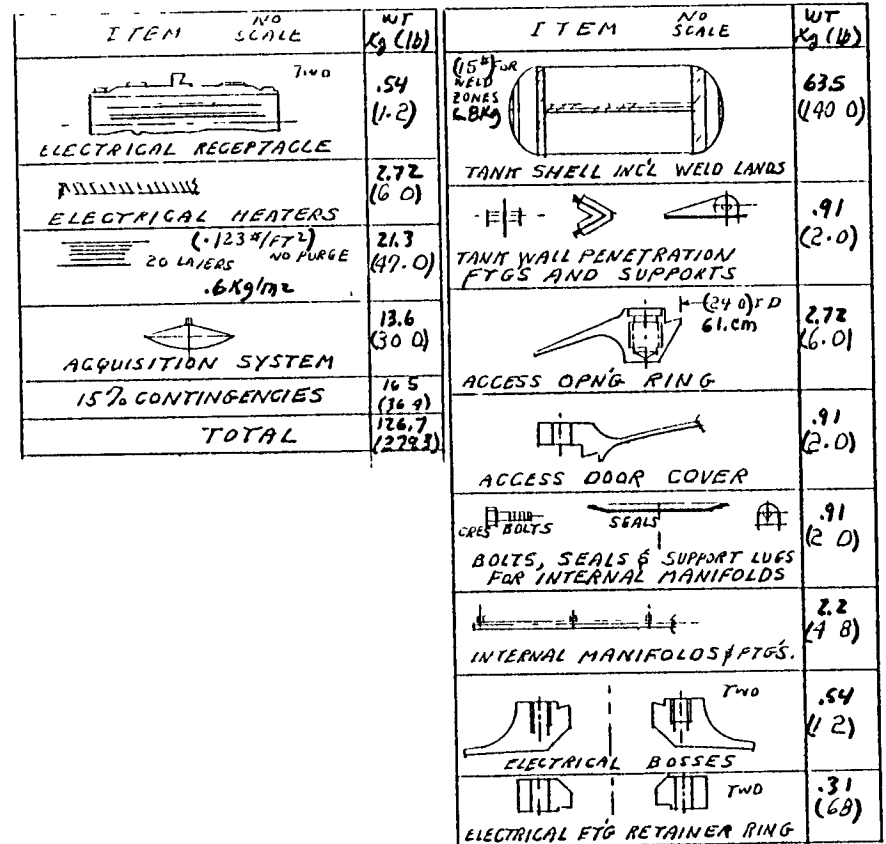 ITEM NO SCALE WT Kg (lb)
TWO
.54
(1.2)
ELECTRICAL RECEPTACLE
2.72
(6 0)
ELECTRICAL HEATERS
(.123#/FT2)
20 LAYERS NO PURGE
.6Kg/m2
21.3
(47.0)
13.6
(30 0)
ACQUISITION SYSTEM
15% CONTINGENCIES
16 5
(36 4)
TOTAL
126.7
(2793)
ITEM NO SCALE WT Kg (lb)
(15#) FOR
WELD
ZONES
6.8Kg
63.5
(140 0)
TANK SHELL INC'L WELD LANDS
.91
(2.0)
TANK WALL PENETRATION
FTGS AND SUPPORTS
(24 0)
61.cm
2.72
(6.0)
ACCESS OPN'G RING
.91
(2.0)
ACCESS DOOR COVER
CRES BOLTS
SEALS
.91
(2 0)
BOLTS, SEALS & SUPPORT LUGS
FOR INTERNAL MANIFOLDS
2.2
(4 8)
INTERNAL MANIFOLDS & FTG'S.
TWO
.54
(1 2)
ELECTRICAL BOSSES
TWO
.31
(68)
ELECTRICAL FT'G RETAINER RING